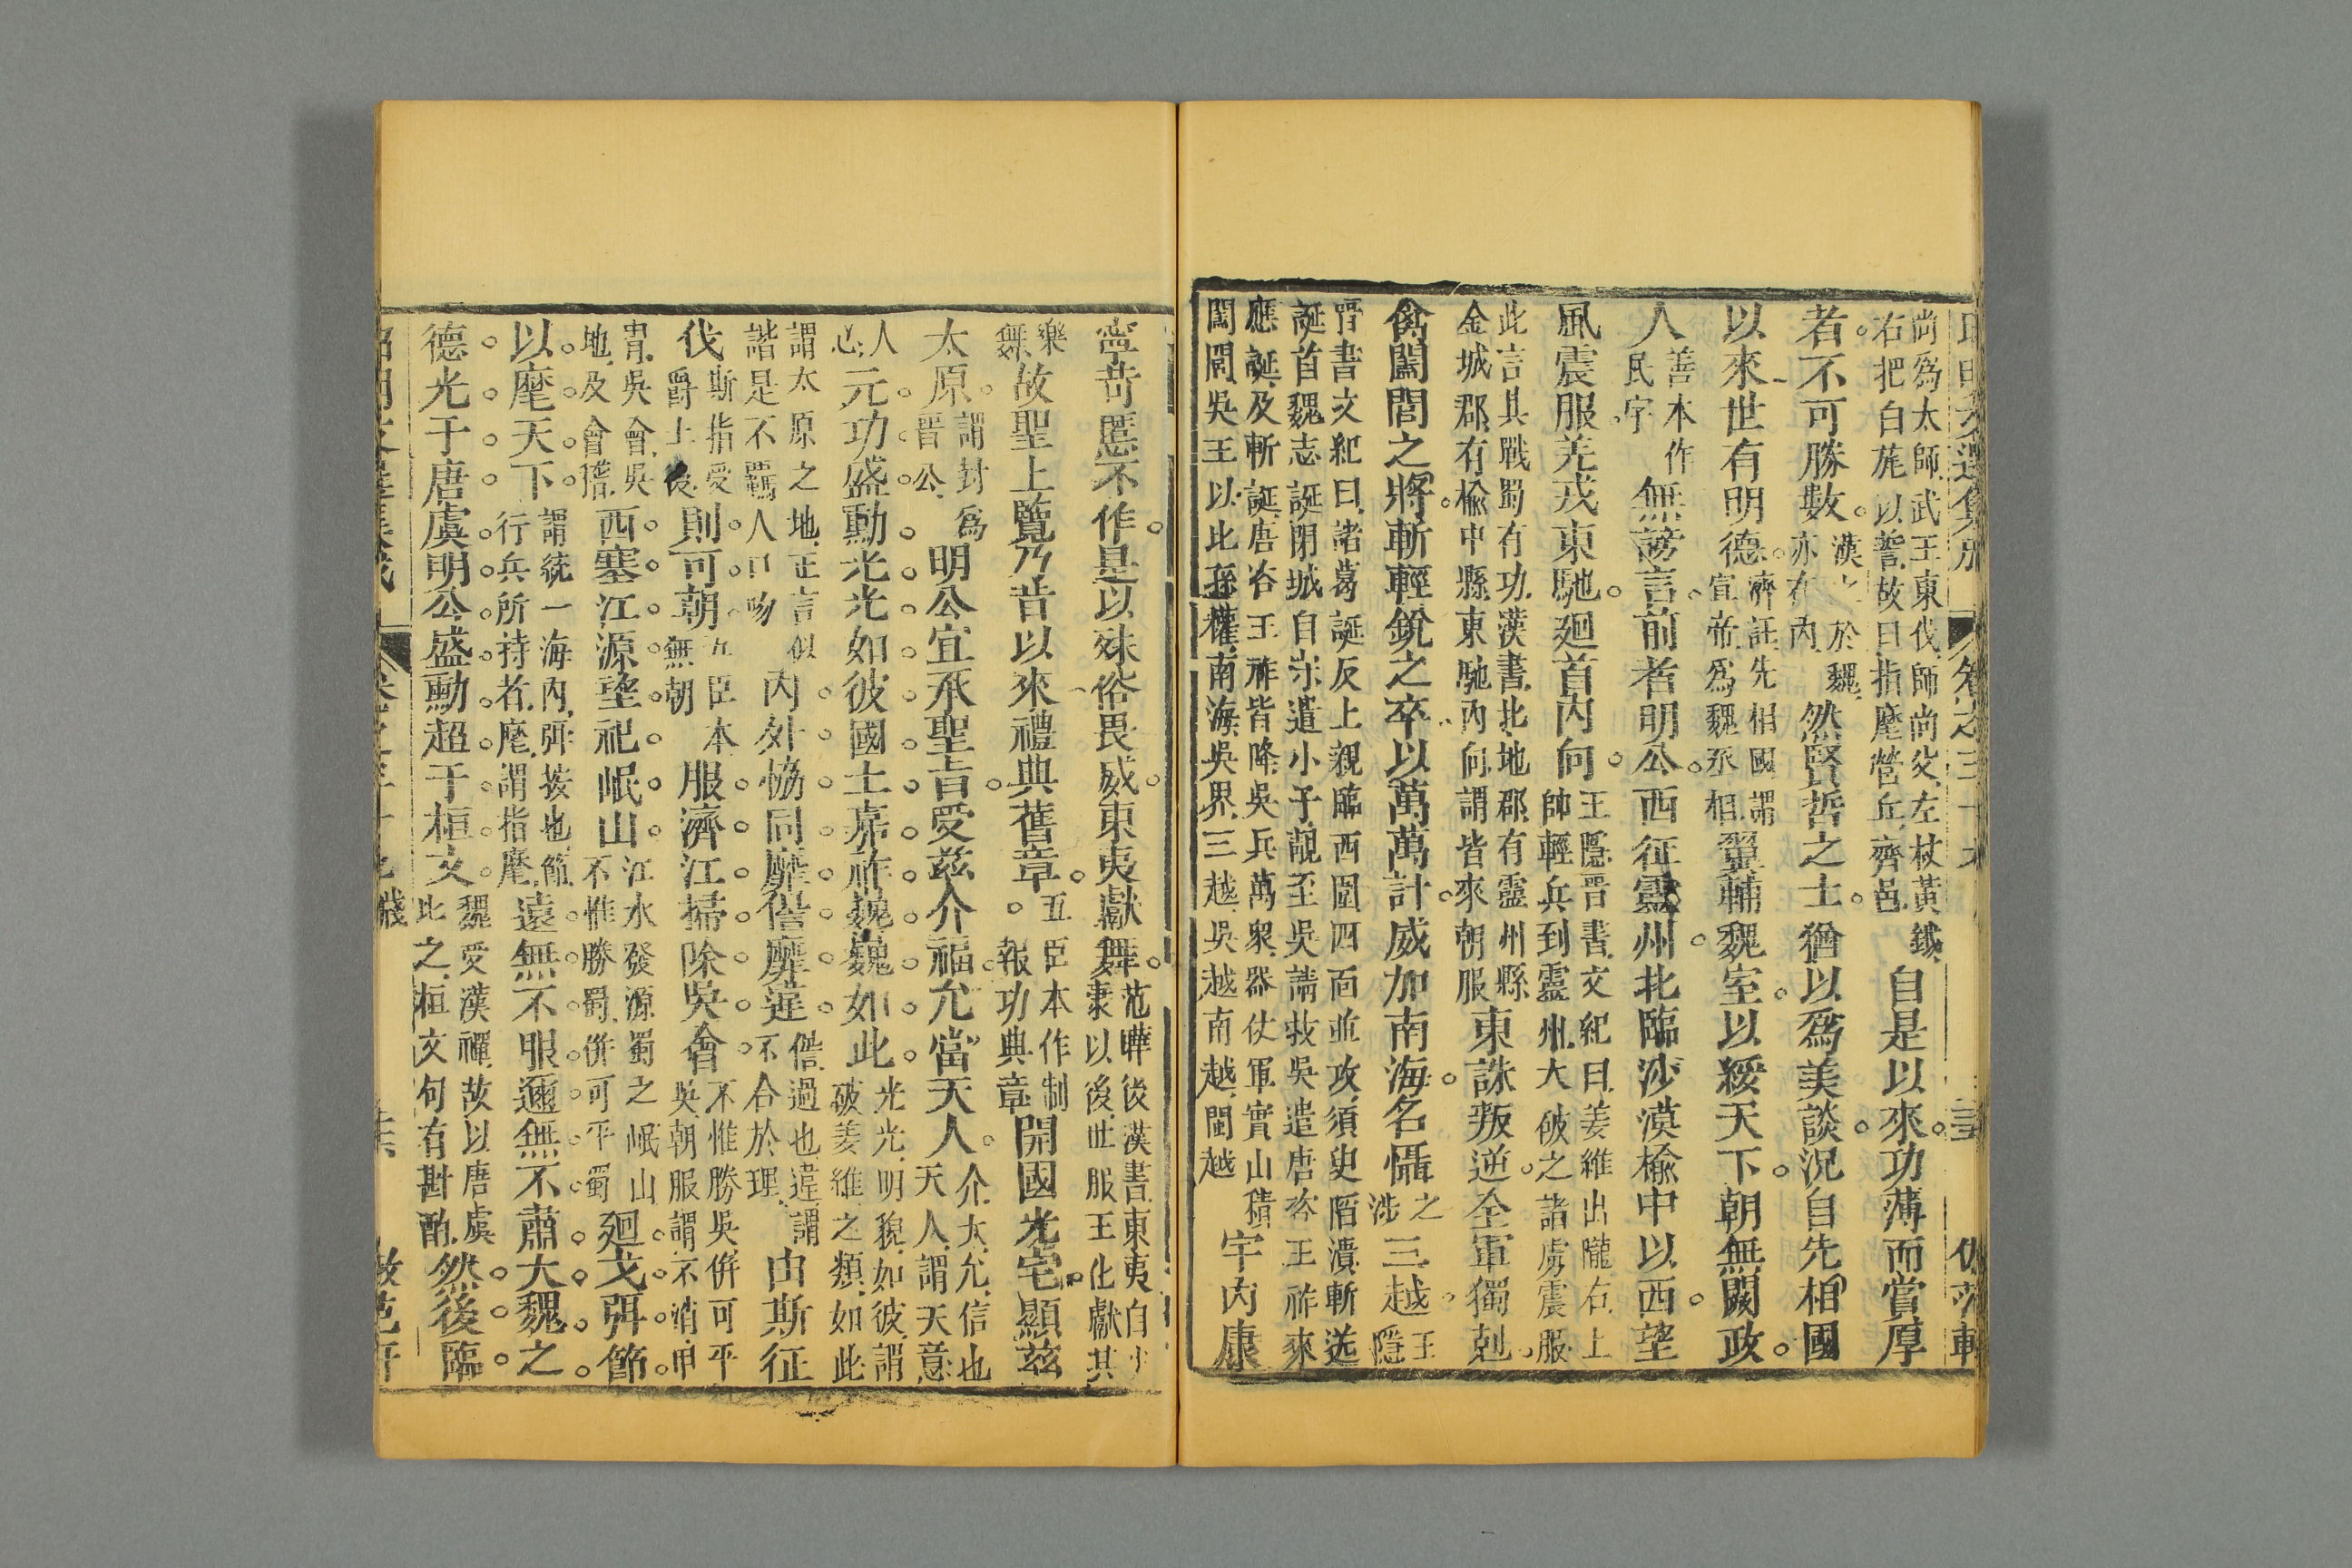 尙爲太師武王東伐師尙父左杖黃鉞
右把白旄以誓故曰指麾營丘齊邑
自是以來功薄而賞厚
者不可勝數
漢之於魏
亦在內
然賢哲之士猶以爲美談況自先相國
以來世有明德
濟註先相國謂
宣帝爲魏丞相
翼輔魏室以綏天下朝無闕政
人
善本作
民字
無謗言前者明公西征靈州北臨沙漠楡中以西望
風震服羌戎東馳廻首內向
王隱晉書文紀曰姜維出隴右上
帥輕兵到靈州大破之諸虜震服
此言其戰蜀有功漢書北地郡有靈州縣
金城郡有楡中縣東馳內向謂皆來朝服
東誅叛逆全軍獨剋
禽闔閭之將斬輕銳之卒以萬萬計威加南海名懾
之
涉
三越
王
隱
晉書文紀曰諸葛誕反上親臨西圍四面並攻須臾陷潰斬送
誕首魏志誕閉城自守遣小子靚至吳請救吳遣唐咨王祚來
應誕及斬誕唐咨王祚皆降吳兵萬衆器仗軍實山積
闔閭吳王以比孫權南海吳界三越吳越南越閩越
宇內康
寧苛慝不作是以殊俗畏威東夷獻舞
范曄後漢書東夷自少
康以後世服王化獻其
樂
舞
故聖上覽乃昔以來禮典舊章
五臣本作制
報功典章
開國光宅顯茲
太原
謂封爲
晉公
明公宜承聖旨受茲介福允當天人
介大允信也
天人謂天意
人
心
元功盛勳光光如彼國土嘉祚巍巍如此
光光明貌如彼謂
破姜維之類如此
謂太原之地正言似
諧是不羈人口吻
內外恊同靡僣靡違
僣過也違謂
不合於理
由斯征
伐
斯指受
爵土後
則可朝
五臣本
無朝
服濟江掃除吳會
不惟勝吳倂可平
吳朝服謂不消甲
冑吳會吳
地及會稽
西塞江源望祀岷山
江水發源蜀之岷山
不惟勝蜀倂可平蜀
廻戈弭節
以麾天下
謂統一海內弭按也節
行兵所持者麾謂指麾
遠無不服邇無不肅大魏之
德光于唐虞明公盛勳超于桓文
魏受漢禪故以唐虞
比之桓文句有斟酌
然後臨